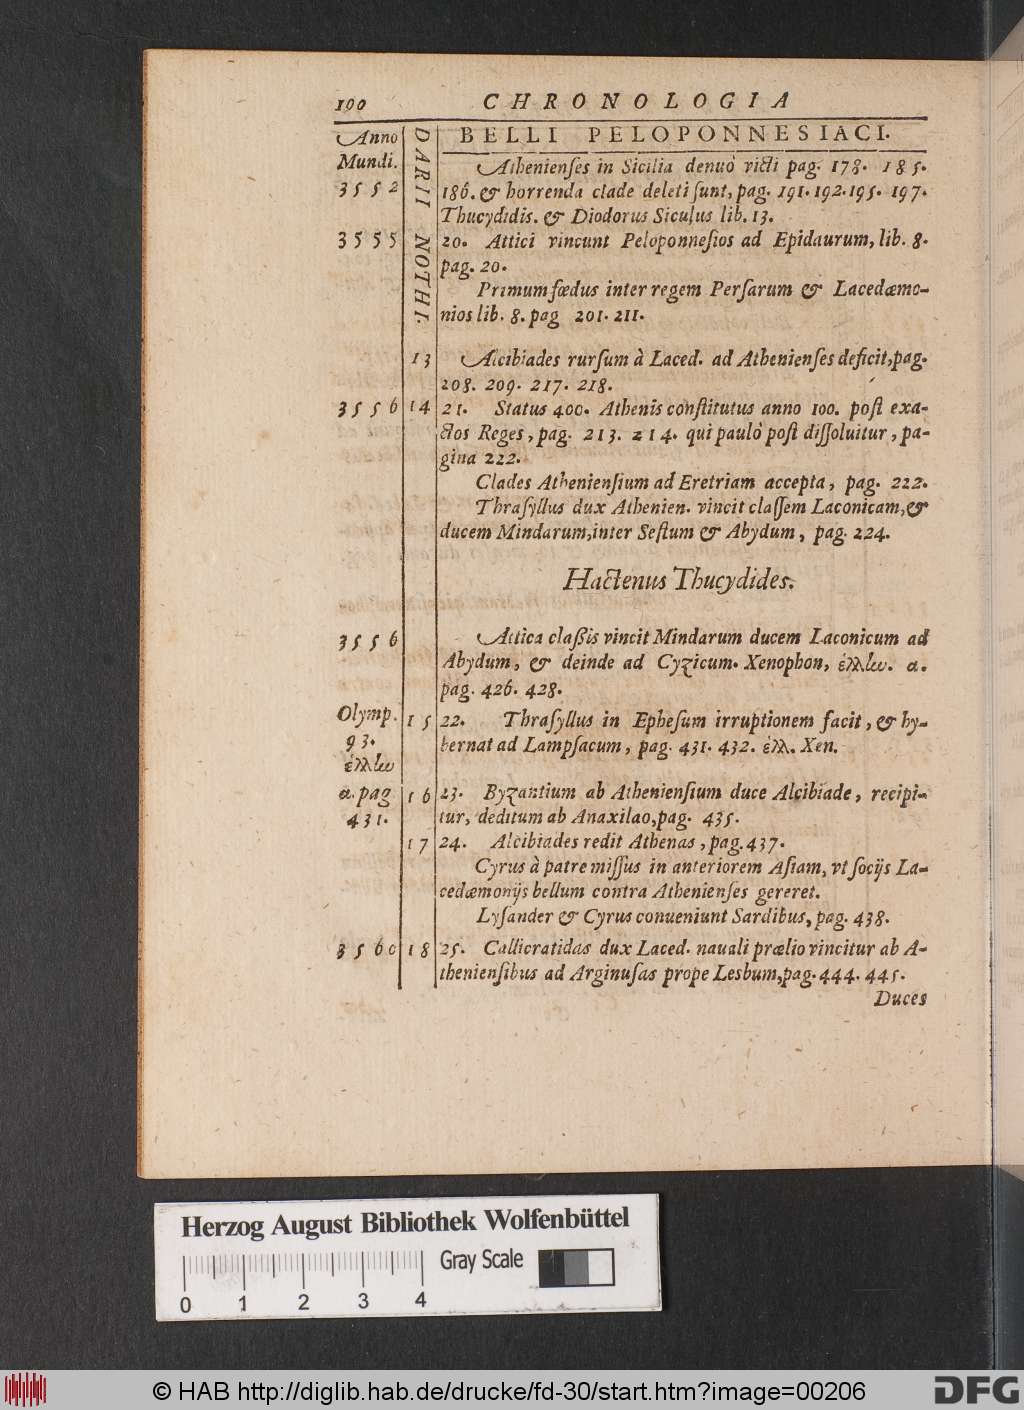 100 CHRONOLOGIA
Anno Mundi. DARII NOTHI. BELLI PELOPONNESIACI.
Athenienſes in Sicilia denuò victi pag. 178. 185.
3552 186. & horrenda clade deleti ſunt, pag. 191. 192. 195. 197.
Thucydidis. & Diodorus Siculus lib. 13.
3555 20. Attici vincunt Peloponneſios ad Epidaurum, lib. 8.
pag. 20.
Primum fœdus inter regem Perſarum & Lacedæmo-
nios lib. 8. pag 201. 211.
13 Alcibiades rurſum à Laced. ad Athenienſes deficit, pag.
208. 209. 217. 218.
3556 14 21. Status 400. Athenis conſtitutus anno 100. poſt exa-
ctos Reges, pag. 213. 214. qui paulò poſt diſſoluitur, pa-
gina 222.
Clades Athenienſium ad Eretriam accepta, pag. 222.
Thraſyllus dux Athenien. vincit claſſem Laconicam, &
ducem Mindarum, inter Seſtum & Abydum, pag. 224.
Hactenus Thucydides.
3556 Attica claßis vincit Mindarum ducem Laconicum ad
Abydum, & deinde ad Cyzicum. Xenophon, ἑλλἰω. α.
pag. 426. 428.
Olymp. 15 22. Thraſyllus in Epheſum irruptionem facit, & hy-
93. bernat ad Lampſacum, pag. 431. 432. ἑλλ. Xen.
ἑλλἰω
α. pag 16 23. Byzantium ab Athenienſium duce Alcibiade, recipi-
431. tur, deditum ab Anaxilao, pag. 435.
17 24. Alcibiades redit Athenas, pag. 437.
Cyrus à patre miſſus in anteriorem Aſiam, vt ſocijs La-
cedæmonijs bellum contra Athenienſes gereret.
Lyſander & Cyrus conueniunt Sardibus, pag. 438.
3560 18 25. Callicratidas dux Laced. nauali prælio vincitur ab A-
thenienſibus ad Arginuſas prope Lesbum, pag. 444. 445.
Duces
Herzog August Bibliothek Wolfenbüttel
Gray Scale
0 1 2 3 4
© HAB http://diglib.hab.de/drucke/fd-30/start.htm?image=00206
DFG